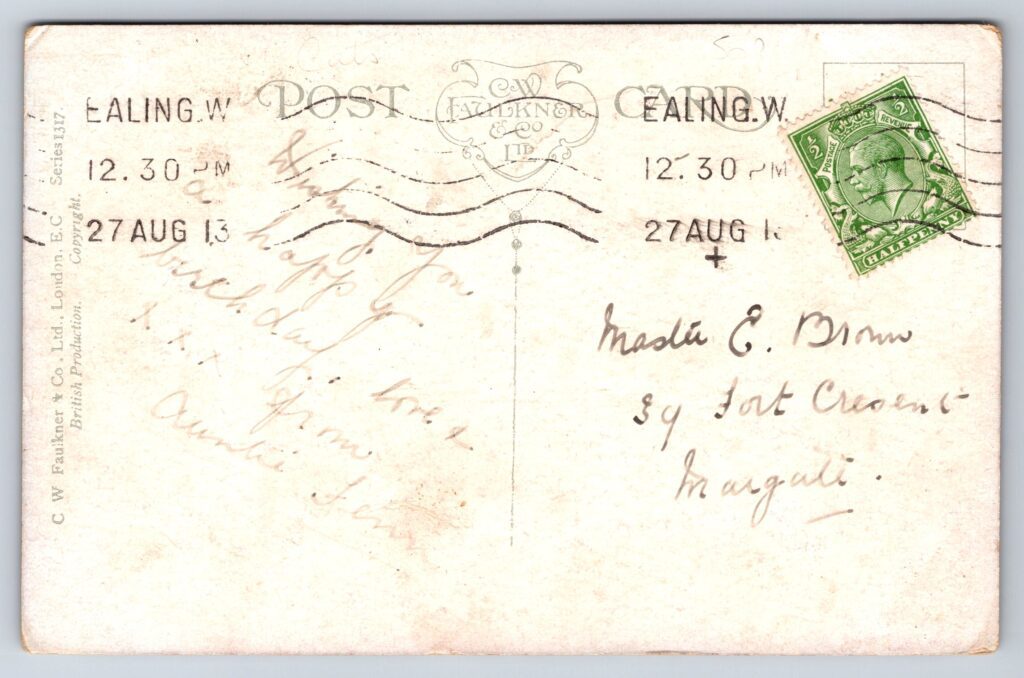 Cats
POST CARD
C.W.
FAULKNER
& Co
LTD
EALING.W
12.30 PM
27 AUG 13
EALING.W.
12.30 PM
27 AUG 1
½ ½
POSTAGE REVENUE
HALFPENNY
C W Faulkner & Co., Ltd., London. E.C Series 1317.
British Production. Copyright.
Wishing you
a happy
birthday love x
x x x from
Auntie
Master E. Brown
39 Fort Cresent
Margate.